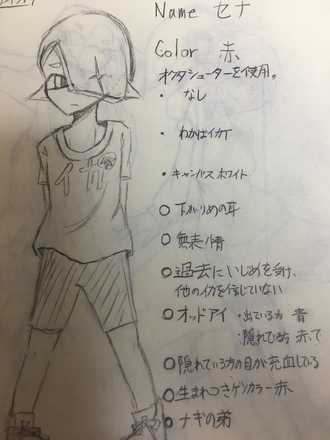 Name セナ
Color 赤
オクタシューターを使用。
・ なし
・ わかばイカT
・ キャンバスホワイト
○ 下がりめの耳
○ 無表情
○ 過去にいじめを受け、
他のイカを信じていない
○ オッドアイ ・出ている方 青
・隠れてる方 赤
○ 隠れている方の目が充血している
○ 生まれつきゲソカラー赤
○ ナギの弟